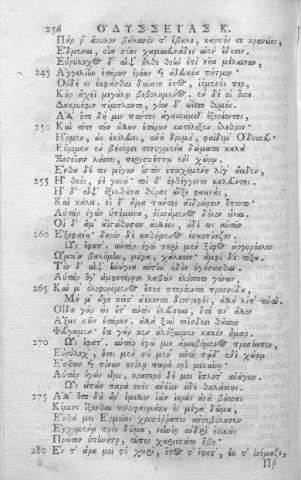 256 ΟΔΥΣΣΕΙΑΣ Κ.
Πὰρ ῥ' ἄκυλον βάλανόν τ' ἔβαλε, καρπόν τε κρανείης,
Ἔδμεναι, οἷα σύες χαμαιευνάδες αἰὲν ἔδουσιν.
Εὐρύλοχος δ' αἶψ' ἦλθε θοὴν ἐπὶ νῆα μέλαιναν,
245 Ἀγγελίην ἑτάρων ἐρέων καὶ ἀδευκέα πότμον·
Οὐδέ τι ἐκφάσθαι δύνατο ἔπος, ἱέμενός περ,
Κῆρ ἄχεϊ μεγάλῳ βεβολημένος· ἐν δέ οἱ ὄσσε
Δακρυόφιν πίμπλαντο, γόον δ' ὠΐετο θυμός.
Ἀλλ' ὅτε δή μιν πάντες ἀγασσάμεθ' ἐξερέοντες,
250 Καὶ τότε τῶν ἄλλων ἑτάρων κατέλεξεν ὄλεθρον·
Ἤομεν, ὡς ἐκέλευες, ἀνὰ δρυμὰ, φαίδιμ' Ὀδυσσεῦ·
Εὕρομεν ἐν βήσσῃσι τετυγμένα δώματα καλὰ
Ξεστοῖσιν λάεσσι, περισκέπτῳ ἐνὶ χώρῳ.
Ἔνθα δέ τις μέγαν ἱστὸν ἐποιχομένη λίγ' ἄειδεν,
255 Ἢ θεὸς, ἠὲ γυνή· τοὶ δ' ἐφθέγγοντο καλεῦντες.
Ἡ δ' αἶψ' ἐξελθοῦσα θύρας ὤϊξε φαεινὰς,
Καὶ κάλει· οἱ δ' ἅμα πάντες ἀϊδρείῃσιν ἕποντο·
Αὐτὰρ ἐγὼν ὑπέμεινα, ὀϊσσάμενος δόλον εἶναι.
Οἱ δ' ἅμ' ἀϊστώθησαν ἀολλέες, οὐδέ τις αὐτῶν
260 Ἐξεφάνη· δηρὸν δὲ καθήμενος ἐσκοπίαζον.
Ὣς ἔφατ'. αὐτὰρ ἐγὼ περὶ μὲν ξίφος ἀργυρόηλον
Ὤμοιϊν βαλόμην, μέγα, χάλκεον, ἀμφὶ δὲ τόξα.
Τὸν δ' αἶψ' ἠνώγεα αὐτὴν ὁδὸν ἡγήσασθαι.
Αὐτὰρ ὅγ' ἀμφοτέρῃσι λαβὼν ἐλίσσετο γούνων,
265 Καί μ' ὀλοφυρόμενος ἔπεα πτερόεντα προσηύδα,
Μή μ' ἄγε κεῖσ' ἀέκοντα διοτρεφὲς, ἀλλὰ λίπ' αὐτοῦ.
Οἶδα γὰρ ὡς οὔτ' αὐτὸς ἐλεύσεαι, οὔτε τιν' ἄλλον
Ἄξεις σῶν ἑτάρων. ἀλλὰ ξὺν τοίσδεσι θᾶσσον
Φεύγωμεν· ἔτι γάρ κεν ἀλύξαιμεν κακὸν ἦμαρ.
270 Ὣς ἔφατ'. αὐτὰρ ἐγώ μιν ἀμειβόμενος προσέειπον,
Εὐρύλοχ', ἤτοι μὲν σὺ μέν' αὐτοῦ τῷδ' ἐνὶ χώρῳ
Ἔσθων καὶ πίνων κοίλῃ παρὰ νηῒ μελαίνῃ·
Αὐτὰρ ἐγὼν εἶμι, κρατερὴ δέ μοι ἔπλετ' ἀνάγκη.
Ὣς εἰπὼν παρὰ νηὸς ἀνήϊον ἠδὲ θαλάσσης.
275 Ἀλλ' ὅτε δὴ ἄρ' ἔμελλον ἰὼν ἱερὰς ἀνὰ βήσσας
Κίρκης ἵξεσθαι πολυφαρμάκου ἐς μέγα δῶμα,
Ἔνθα μοι Ἑρμείας χρυσόρραπις ἀντεβόλησεν
Ἐρχομένῳ πρὸς δῶμα, νεηνίῃ ἀνδρὶ ἐοικὼς
Πρῶτον ὑπηνήτῃ, τοῦπερ χαριεστάτη ἥβη·
280 Ἔν τ' ἄρα μοι φῦ χειρὶ, ἔπος τ' ἔφατ', ἔκ τ' ὀνόμαζε,